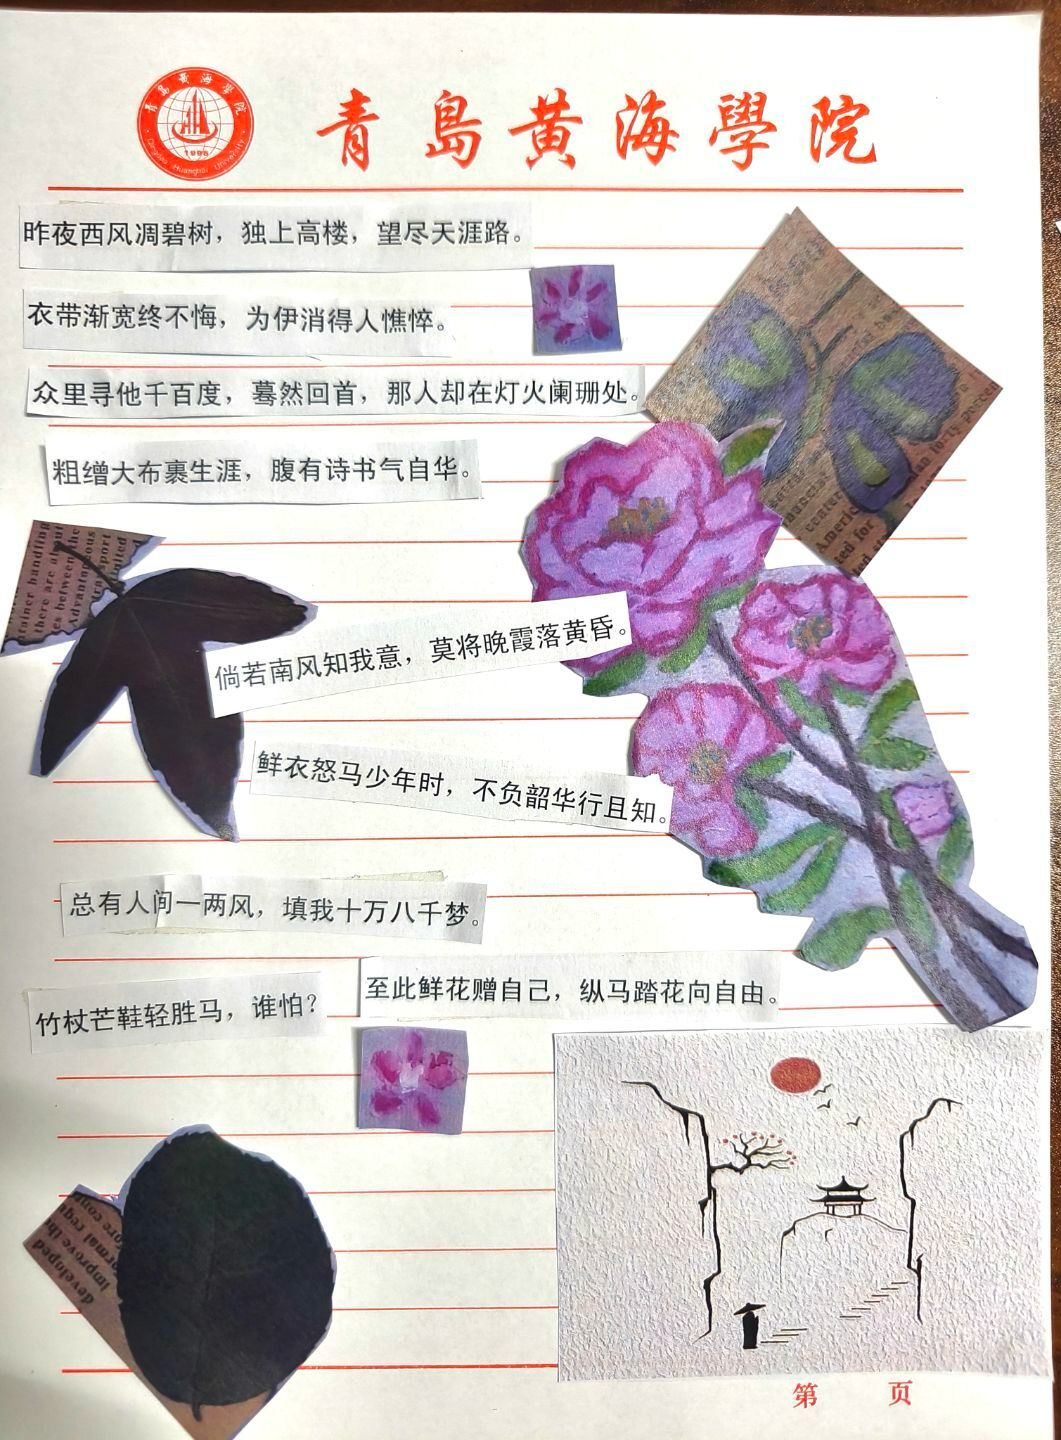 青島黄海學院
青島黄海學院
Qingdao Huanghai University
1996
昨夜西风凋碧树，独上高楼，望尽天涯路。
衣带渐宽终不悔，为伊消得人憔悴。
众里寻他千百度，蓦然回首，那人却在灯火阑珊处。
粗缯大布裹生涯，腹有诗书气自华。
tainer handling
there are about
es between the
Advantageous
transport
倘若南风知我意，莫将晚霞落黄昏。
鲜衣怒马少年时，不负韶华行且知。
总有人间一两风，填我十万八千梦。
竹杖芒鞋轻胜马，谁怕？
至此鲜花赠自己，纵马踏花向自由。
developed
improve the
第 页